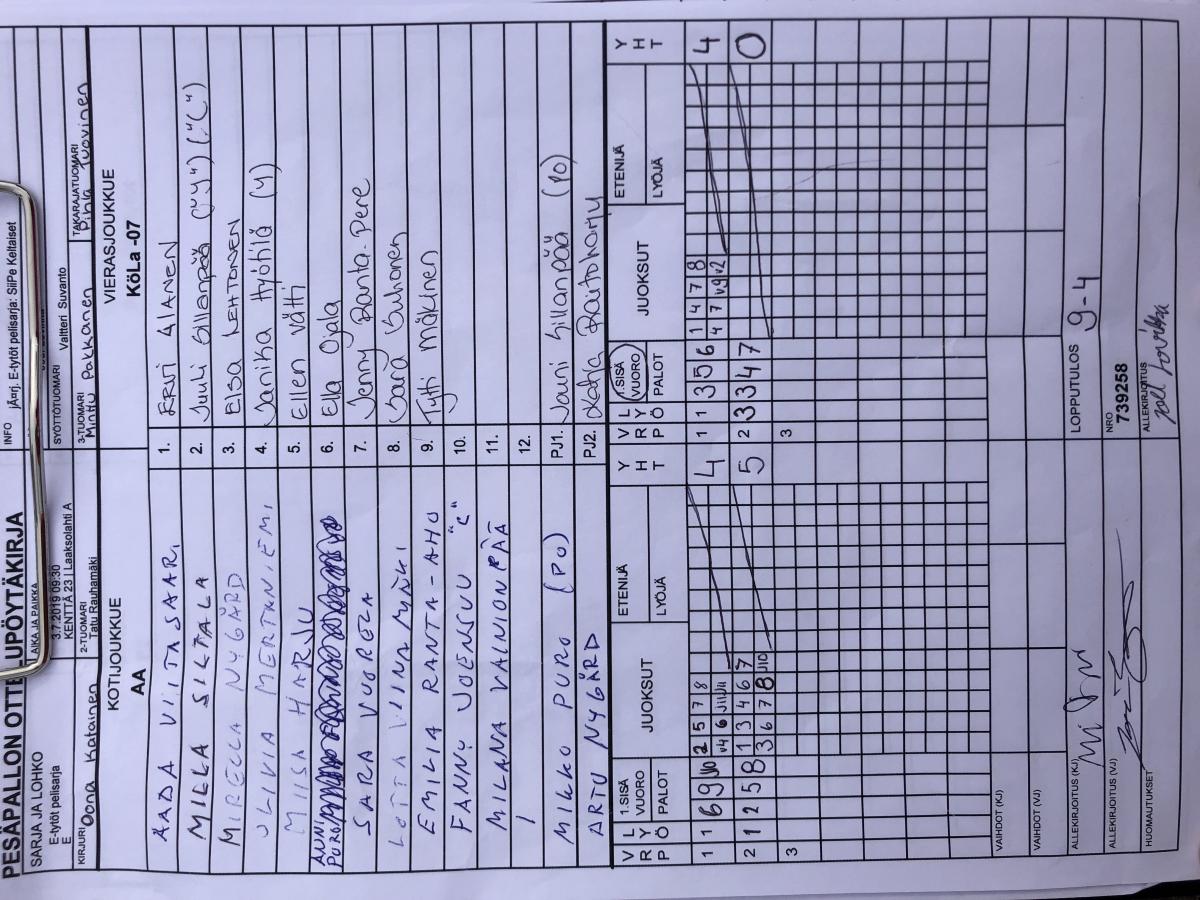 PESÄPALLON OTTELUPÖYTÄKIRJA
SARJA JA LOHKO
E-tytöt pelisarja
E
AIKA JA PAIKKA
3.7.2019 09:30
KENTTÄ 23 | Laaksolahti A
INFO
E-tytöt pelisarja: SiiPe Keltaiset
SYÖTTÖTUOMARI
Valtteri Suvanto
KIRJURI
Oona Katainen
2-TUOMARI
Tatu Rauhamäki
3-TUOMARI
Minttu Pakkanen
TAKARAJATUOMARI
Pihla Tuovinen
KOTIJOUKKUE
AA
VIERASJOUKKUE
KöLa -07
AADA VIITASAARI
1. ERVI ALANEN
MILLA SILTALA
2. Juuli Sillanpää ("y") ("C")
MIRELLA NYGÅRD
3. Elsa Lehtonen
OLIVIA MERTANIEMI
4. Janika Hyötilä (y)
MIISA HARJU
5. Ellen Välti
ANNI PURO
6. Ella Ojala
SARA VUORELA
7. Jenny Ranta-Pere
LOTTA VIINAMÄKI
8. Sara Suhonen
EMILIA RANTA-AHO
9. Tytti Mäkinen
FANNY JOENSUU "C"
10.
MILANA VAINIONPÄÄ
11.
12.
MIKKO PURO (PJ)
PJ1. Jouni Sillanpää (PJ)
ARTU NYGÅRD
PJ2. Katja Rautoharju
V R P
L Y Ö
1.SISÄ VUORO
PALOT
JUOKSUT
ETENIJÄ
LYÖJÄ
Y H T
V R P
L Y Ö
1.SISÄ VUORO
PALOT
JUOKSUT
ETENIJÄ
LYÖJÄ
Y H T
1 1 6 9 J10 2 5 7 8 4
V4 6 J11 J11
1 1 3 5 6 1 4 7 8 4
4 7 V9 V2
2 1 2 5 8 1 3 4 6 7 5
3 6 7 8 J10
2 3 3 4 7 0
3
3
VAIHDOT (KJ)
VAIHDOT (VJ)
ALLEKIRJOITUS (KJ)
LOPPUTULOS
9-4
ALLEKIRJOITUS (VJ)
NRO
739258
HUOMAUTUKSET
ALLEKIRJOITUS